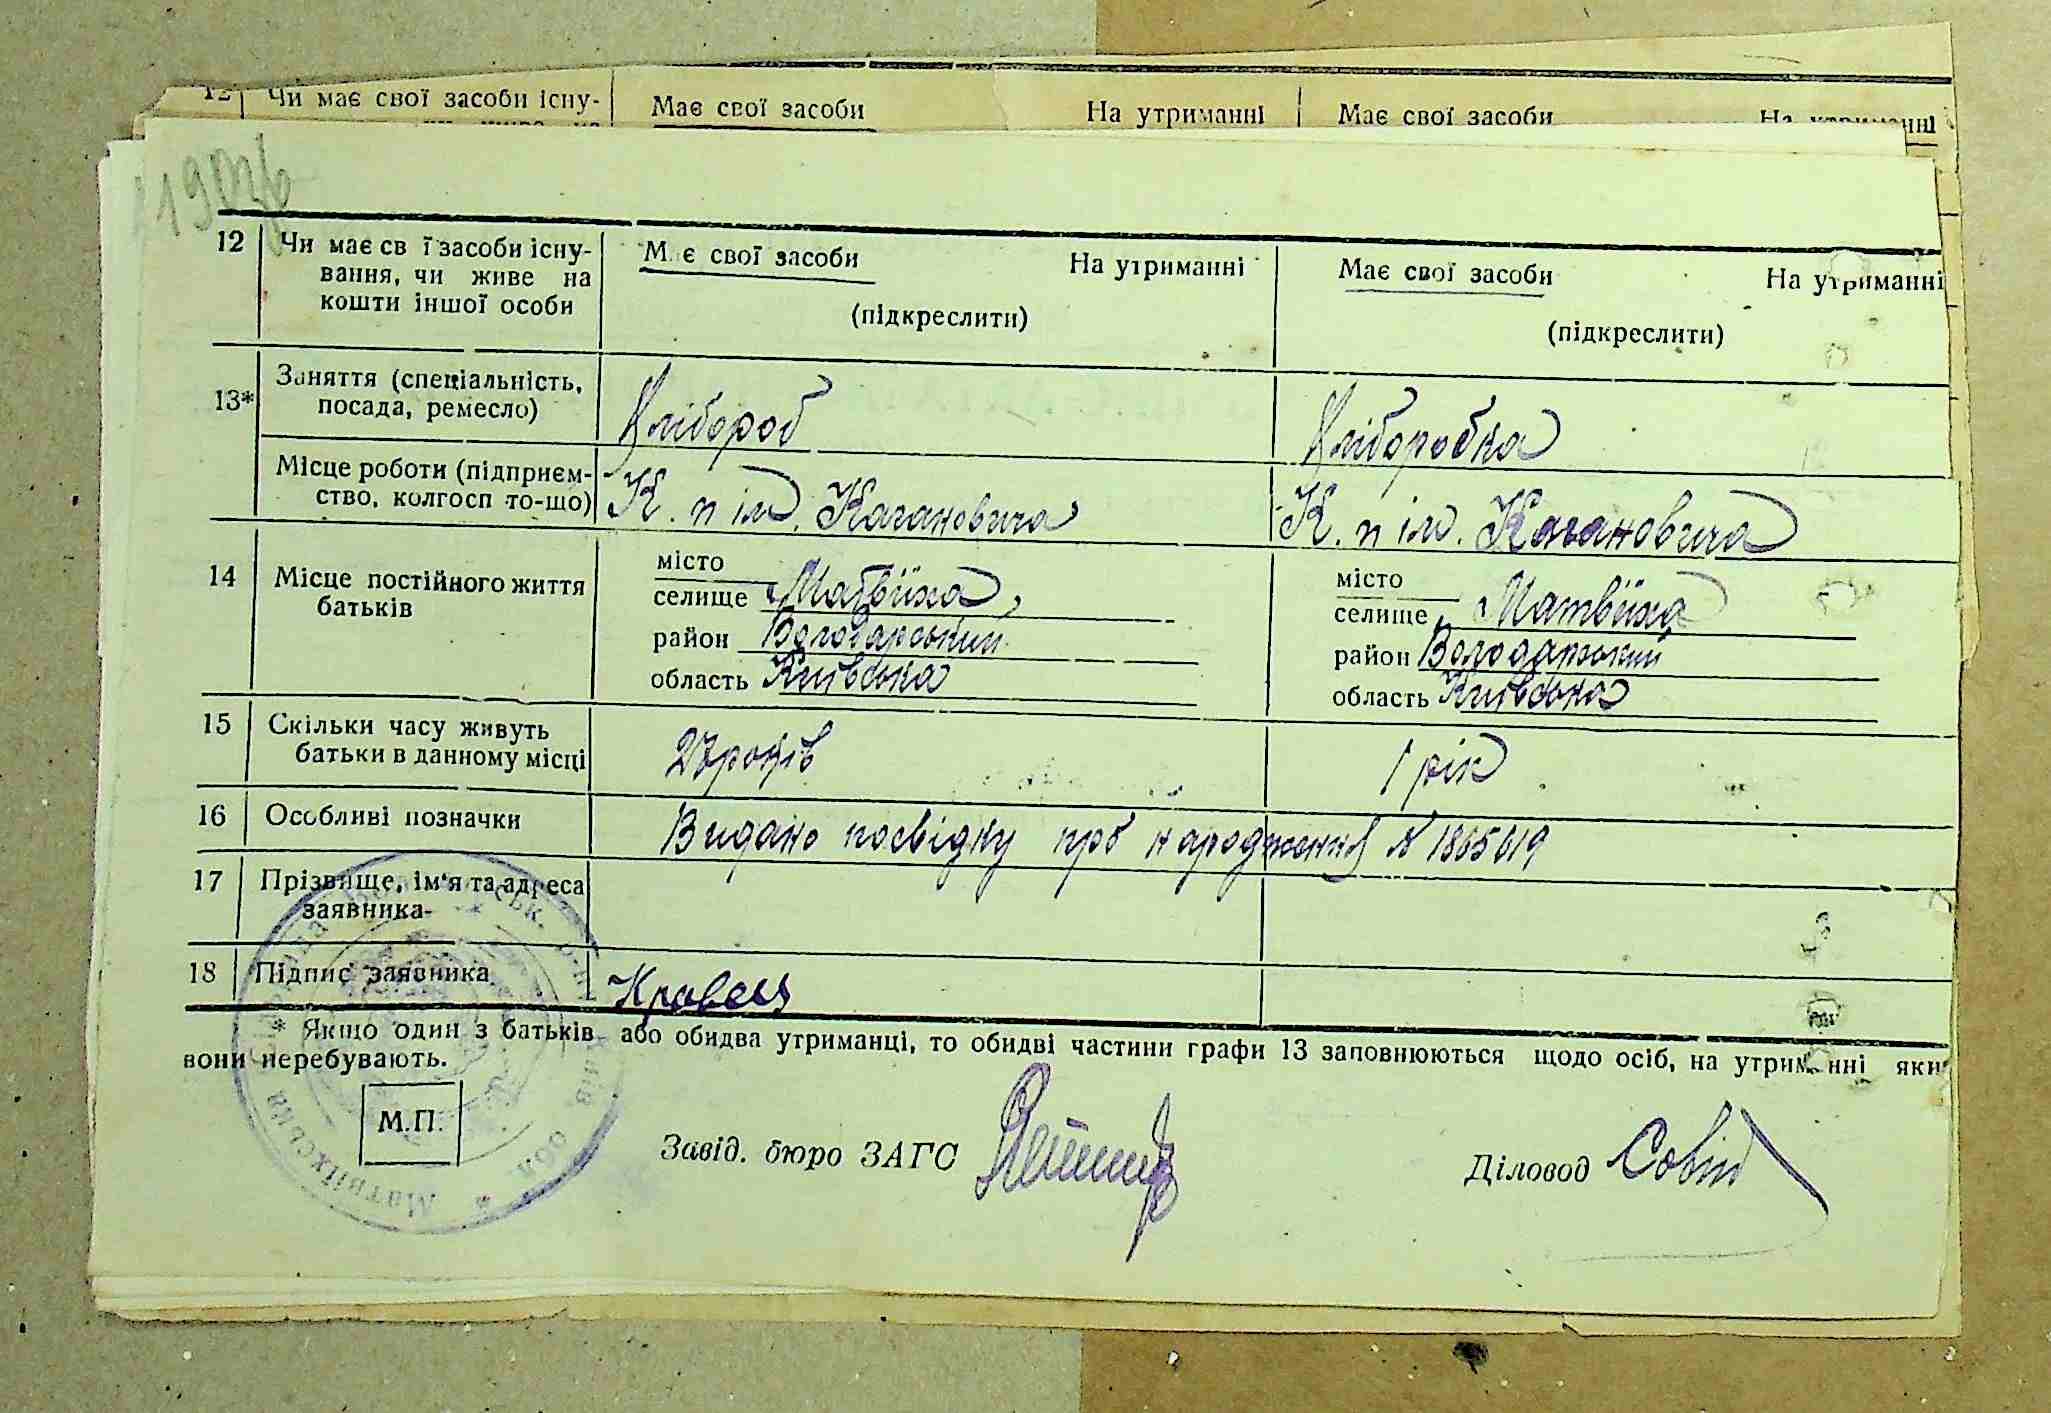 12 Чи має свої засоби існу- Має свої засоби На утриманні Має свої засоби На утриманні
1903б
12 Чи має св ї засоби існу- М є свої засоби На утриманні Має свої засоби На утриманні
вання, чи живе на
кошти іншої особи (підкреслити) (підкреслити)
13* Заняття (спеціальність,
посада, ремесло) Хлібороб Хліборобка
Місце роботи (підприєм-
ство, колгосп то-що) К. п ім. Кагановича К. п ім. Кагановича
14 Місце постійного життя
батьків
місто місто
селище Матвіїха, селище Матвіїха
район Володарський район Володарський
область Київська область Київська
15 Скільки часу живуть
батьки в данному місці 27 років 1 рік
16 Особливі позначки Видано посвідку про народження N 1865619
17 Прізвище, ім'я та адреса
заявника
18 Підпис заявника Кравець
* Якщо один з батьків або обидва утриманці, то обидві частини графи 13 заповнюються щодо осіб, на утриманні яки
вони перебувають.
М.П.
Завід. бюро ЗАГС
Діловод
Матвіїхська